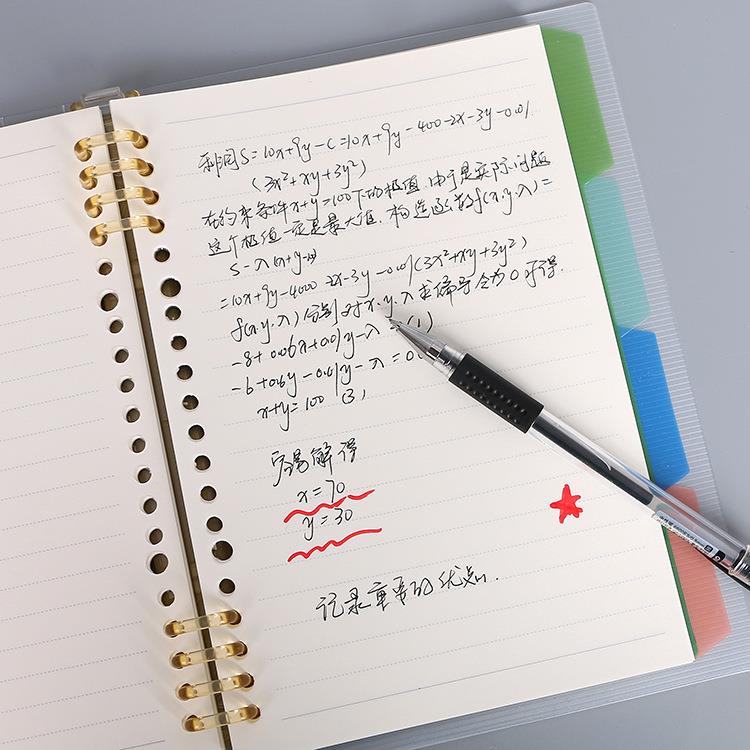 利润S=10x+9y-C=10x+9y-400-2x-3y-0.01
(3x²+xy+3y²)
在约束条件x+y=100下的极值.由于是实际问题
这个极值一定是最大值.构造函数f(x.y.λ)=
S-λ(x+y-100)
=10x+9y-4000-2x-3y-0.01(3x²+xy+3y²)
f(x.y.λ)分别对x.y.λ求偏导令为0可得.
-8+0.06x+0.01y-λ=(1)
-6+0.6y-0.01y-λ=0
x+y=100 (3)
容易解得
x=70
y=30
记录重要的优点.